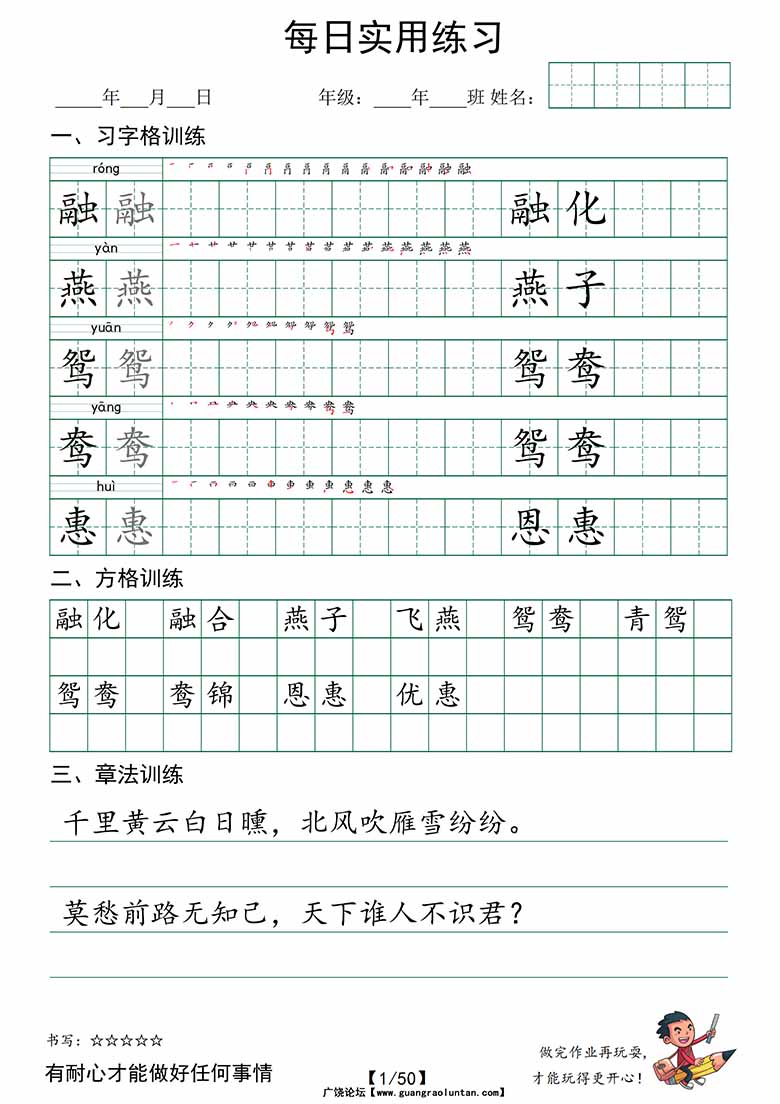 每日实用练习
_____年___月___日 年级：____年____班 姓名：
一、习字格训练
róng
融 融 融 化
yàn
燕 燕 燕 子
yuān
鸳 鸳 鸳 鸯
yāng
鸯 鸯 鸳 鸯
huì
惠 惠 恩 惠
二、方格训练
融化 融合 燕子 飞燕 鸳鸯 青鸳
鸳鸯 鸯锦 恩惠 优惠
三、章法训练
千里黄云白日曛，北风吹雁雪纷纷。
莫愁前路无知己，天下谁人不识君？
书写：☆☆☆☆☆
有耐心才能做好任何事情
【1/50】
广饶论坛【www.guangraoluntan.com】
做完作业再玩耍，
才能玩得更开心！